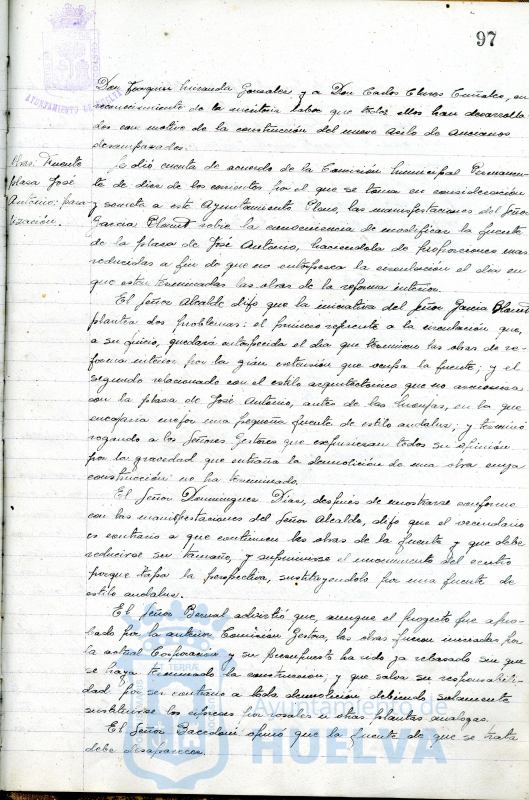 97
AYUNTAMIENTO DE
Don Joaquin Miranda Gonzalez y a Don Carlos en
reconocimiento de la meritoria labor que todos ellos han desarrolla
do con motivo de la construcción del nuevo Asilo de Ancianos
desamparados.
Obras. Fuente
plaza José
Antonio: para-
lización.
Se dió cuenta de acuerdo de la Comisión Municipal Permanen-
te de diez de los corrientes por el que se toma en consideración
y somete a este Ayuntamiento Pleno, las manifestaciones del Señor
Garcia sobre la conveniencia de modificar la fuente
de la plaza de José Antonio, haciendola de proporciones mas
reducidas a fin de que no entorpezca la circulación el dia en
que esten terminadas las obras de la reforma interior.
El Señor Alcalde dijo que la iniciativa del Señor Garcia
plantea dos problemas: el primero referente a la circulación que,
a su juicio, quedará entorpecida el dia que terminen las obras de re-
forma interior por la gran extensión que ocupa la fuente; y el
segundo relacionado con el estilo arquitectonico que no armoniza
con la plaza de José Antonio, antes de las Monjas, en la que
encajaria mejor una pequeña fuente de estilo andaluz; y terminó
rogando a los Señores Gestores que expusieran todos su opinión
por la gravedad que entraña la demolición de una obra cuya
construcción no ha terminado.
El Señor Dominguez Diaz, después de mostrarse conforme
con las manifestaciones del Señor Alcalde, dijo que el vecindario
es contrario a que continuen las obras de la fuente y que debe
reducirse su tamaño, y suprimirse el monumento del centro
porque tapa la perspectiva, sustituyendolo por una fuente de
estilo andaluz.
El Señor Bernal advirtió que, aunque el proyecto fue apro-
bado por la anterior Comisión Gestora, las obras fueron iniciadas por
la actual Corporación y su presupuesto ha sido ya rebasado sin que
se haya terminado la construccion; y que salva su responsabili-
dad por ser contrario a toda demolición debiendo solamente
sustituirse los cipreses por rosales u otras plantas analogas.
El Señor opinó que la fuente de que se trata
debe desaparecer.
Ayuntamiento de
HUELVA